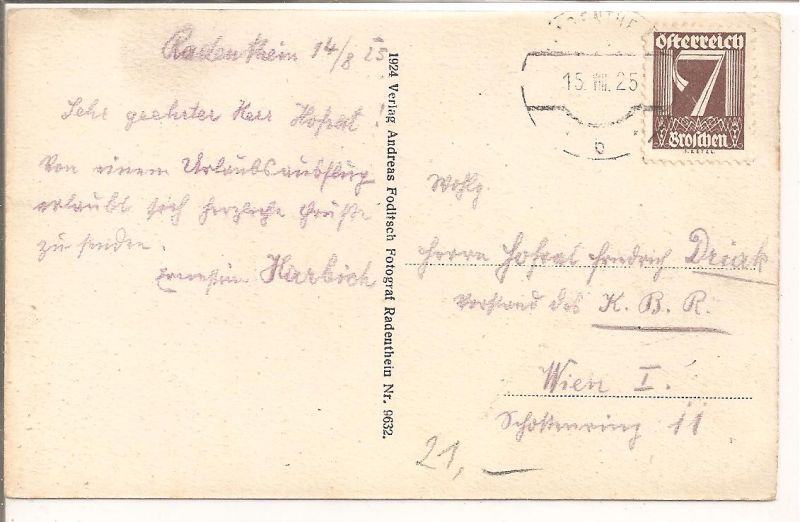 Radenthein 14/8 25
Sehr geehrter Herr Hofrat!
Von einem Urlaubsausflug
erlaubt sich herzliche Grüße
zu senden.
Ernestine Harbich
1924 Verlag Andreas Foditsch Fotograf Radenthein Nr. 9632.
15. VIII. 25
b
Österreich
7
Groschen
Wohlg.
Herrn Hofrat Friedrich Driak
Vorstand des K. B. R.
Wien I.
Schottenring 11
21,—